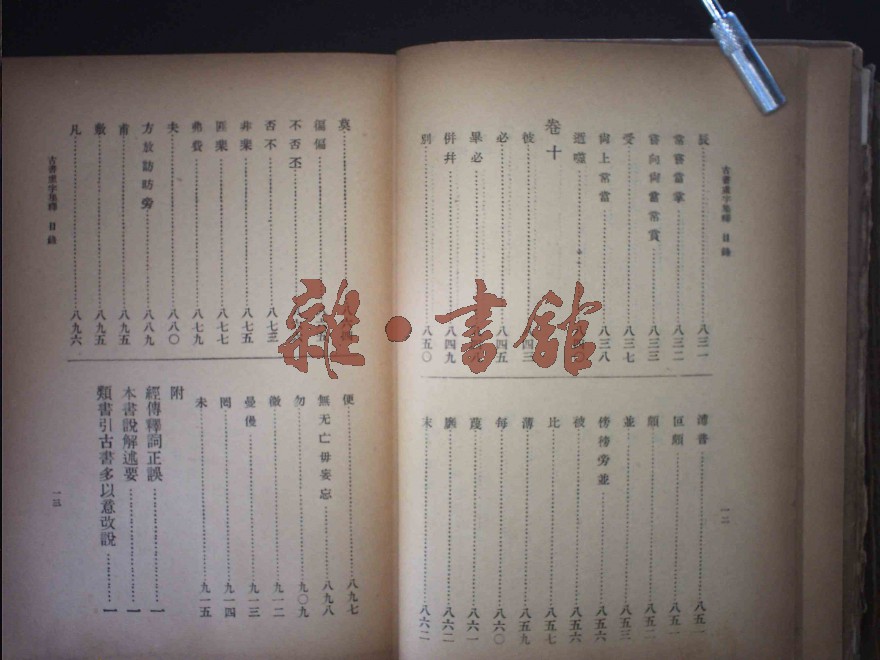 古書虛字集釋 目錄
辰……八三一
常嘗當掌……八三二
嘗向尙當常賞……八三三
受……八三七
尙上常當……八三八
逝噬
卷十
彼……八四三
必……八四五
畢必……八四九
併幷……八四九
別……八五〇
溥普……八五一
叵頗……八五一
頗……八五二
並……八五三
傍徬旁並……八五六
被……八五六
比……八五七
薄……八五九
每……八六〇
蔑……八六一
靡……八六二
末……八六二
一二
莫
徧偏
不否丕
否不……八七三
非棐……八七五
匪棐……八七七
弗費……八七九
夫……八八〇
方放訪昉旁……八八九
甫……八九五
敷……八九五
凡……八九六
古書虛字集釋 目錄
便……八九七
無无亡毋妄忘……八九八
勿……九〇九
微……九一二
曼慢……九一三
罔……九一四
未……九一五
附
經傳釋詞正誤……一
本書說解述要……一
類書引古書多以意改說……一
一三
雜·書館